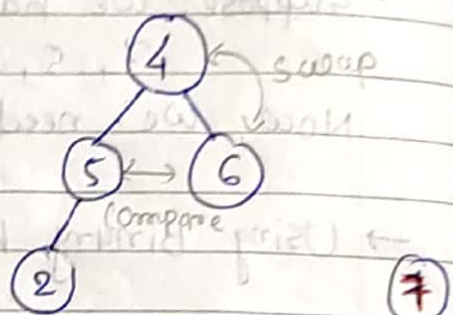 4
swap
5 6
compare
2 7